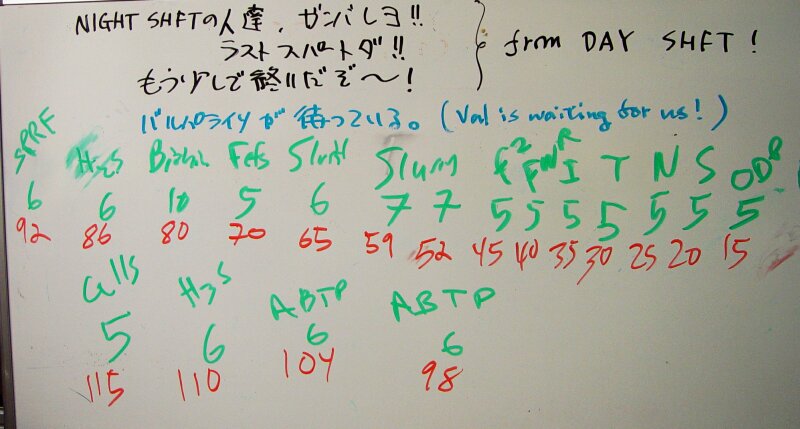 NIGHT SHFTの人達、ガンバレヨ!!
ラストスパートダ!! from DAY SHFT!
もう少しで終りだぞ〜!
バルパライソが待っている。(Val is waiting for us!)
SPRF H3S Fets Slum T N S
6 6 10 5 6 7 7 5 5 5 5 5 5 5
92 86 80 70 65 59 52 45 40 35 30 25 20 15
H3S ABTP ABTP
5 6 6 6
115 110 104 98